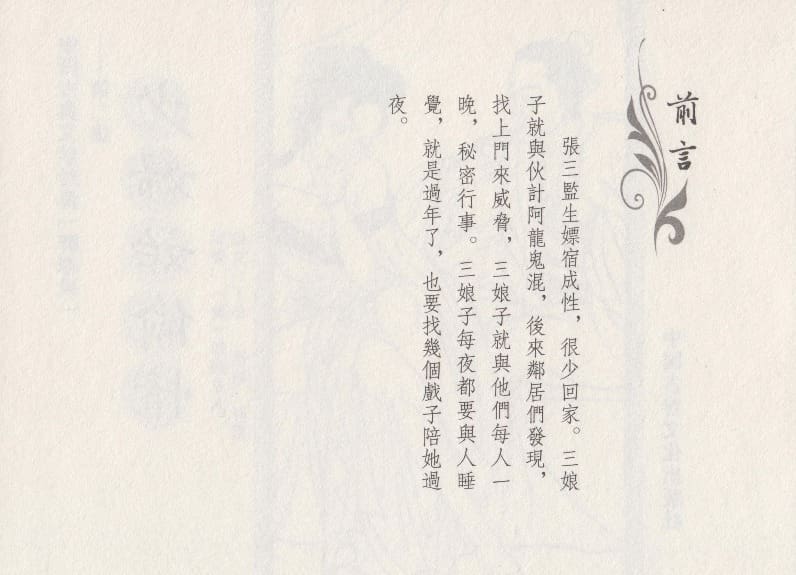 前言
張三監生嫖宿成性，很少回家。三娘
子就與伙計阿龍鬼混，後來鄰居們發現，
找上門來威脅，三娘子就與他們每人一
晚，秘密行事。三娘子每夜都要與人睡
覺，就是過年了，也要找幾個戲子陪她過
夜。